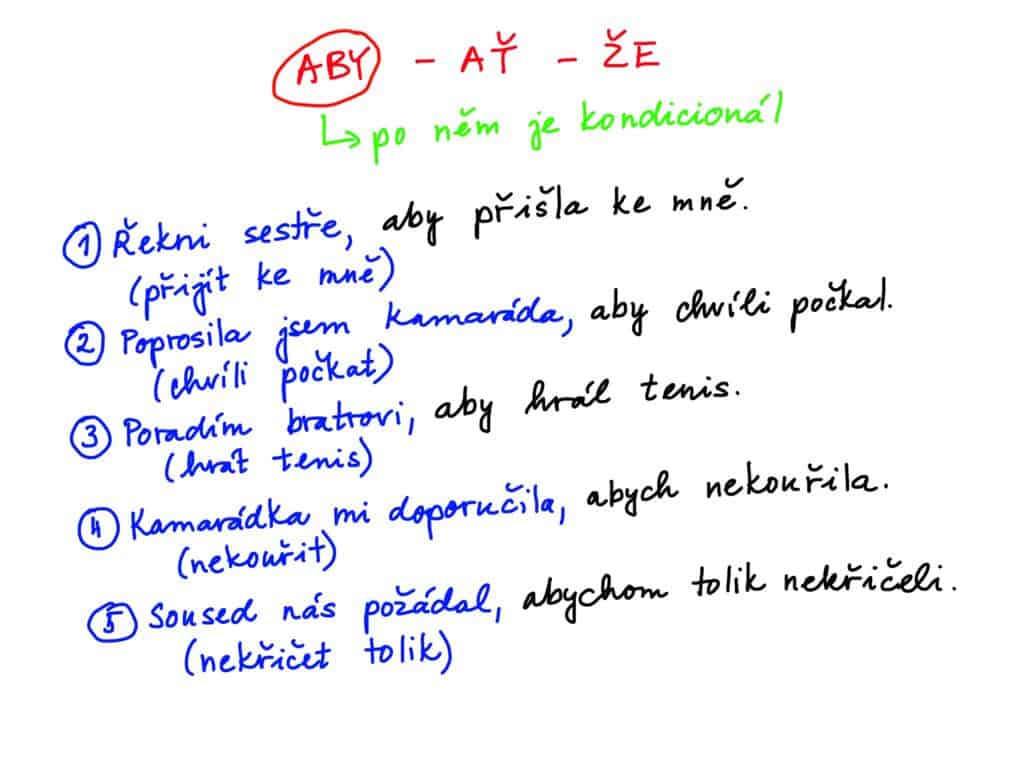 ABY - AŤ - ŽE
↳ po něm je kondicionál
① Řekni sestře, aby přišla ke mně.
(přijít ke mně)
② Poprosila jsem kamaráda, aby chvíli počkal.
(chvíli počkat)
③ Poradím bratrovi, aby hrál tenis.
(hrát tenis)
④ Kamarádka mi doporučila, abych nekouřila.
(nekouřit)
⑤ Soused nás požádal, abychom tolik nekřičeli.
(nekřičet tolik)